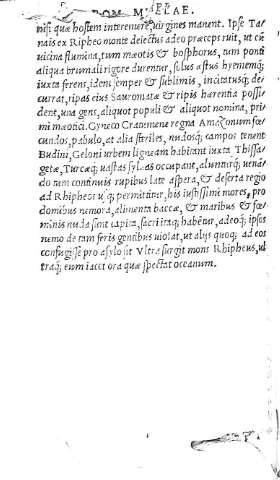 POM. MELAE.
nisi quæ hostem interemere, uirgines manent. Ipse Ta-
nais ex Ripheo monte deiectus adeo præceps ruit, ut cū
uicina flumina, tum mæotis & bosphorus, tum ponti
aliqua brumali rigore durentur, solus æstus hyememq;
iuxta ferens, idem semper & sublimis, incitatusq; de-
currat, ripas eius Sauromatæ & ripis hærentia possi-
dent, una gens, aliquot populi & aliquot nomina, pri-
mi mæotici. Gyneco Cratumene regna Amazonum fœ-
cundos, pabulo, at alia steriles, nudosq; campos tenent
Budini, Geloni urbem ligneam habitant iuxta Thissa-
getæ, Turcæq; uastas syluas occupant, alunturq; uenā-
do tum continuis rupibus late aspera, & deserta regio
ad Rhipheos usq; permittitur, his iustissimi mores, pro
domibus nemora, alimenta baccæ, & maribus & fœ-
minis nuda sunt capita, sacri itaq; habētur, adeoq; ipsos
nemo de tam feris gentibus uiolat, ut alijs quoq; ad eos
confugisse pro asylo sit Vltra surgit mons Rhipheus, ul
traq; eum iacet ora quæ spectat oceanum.